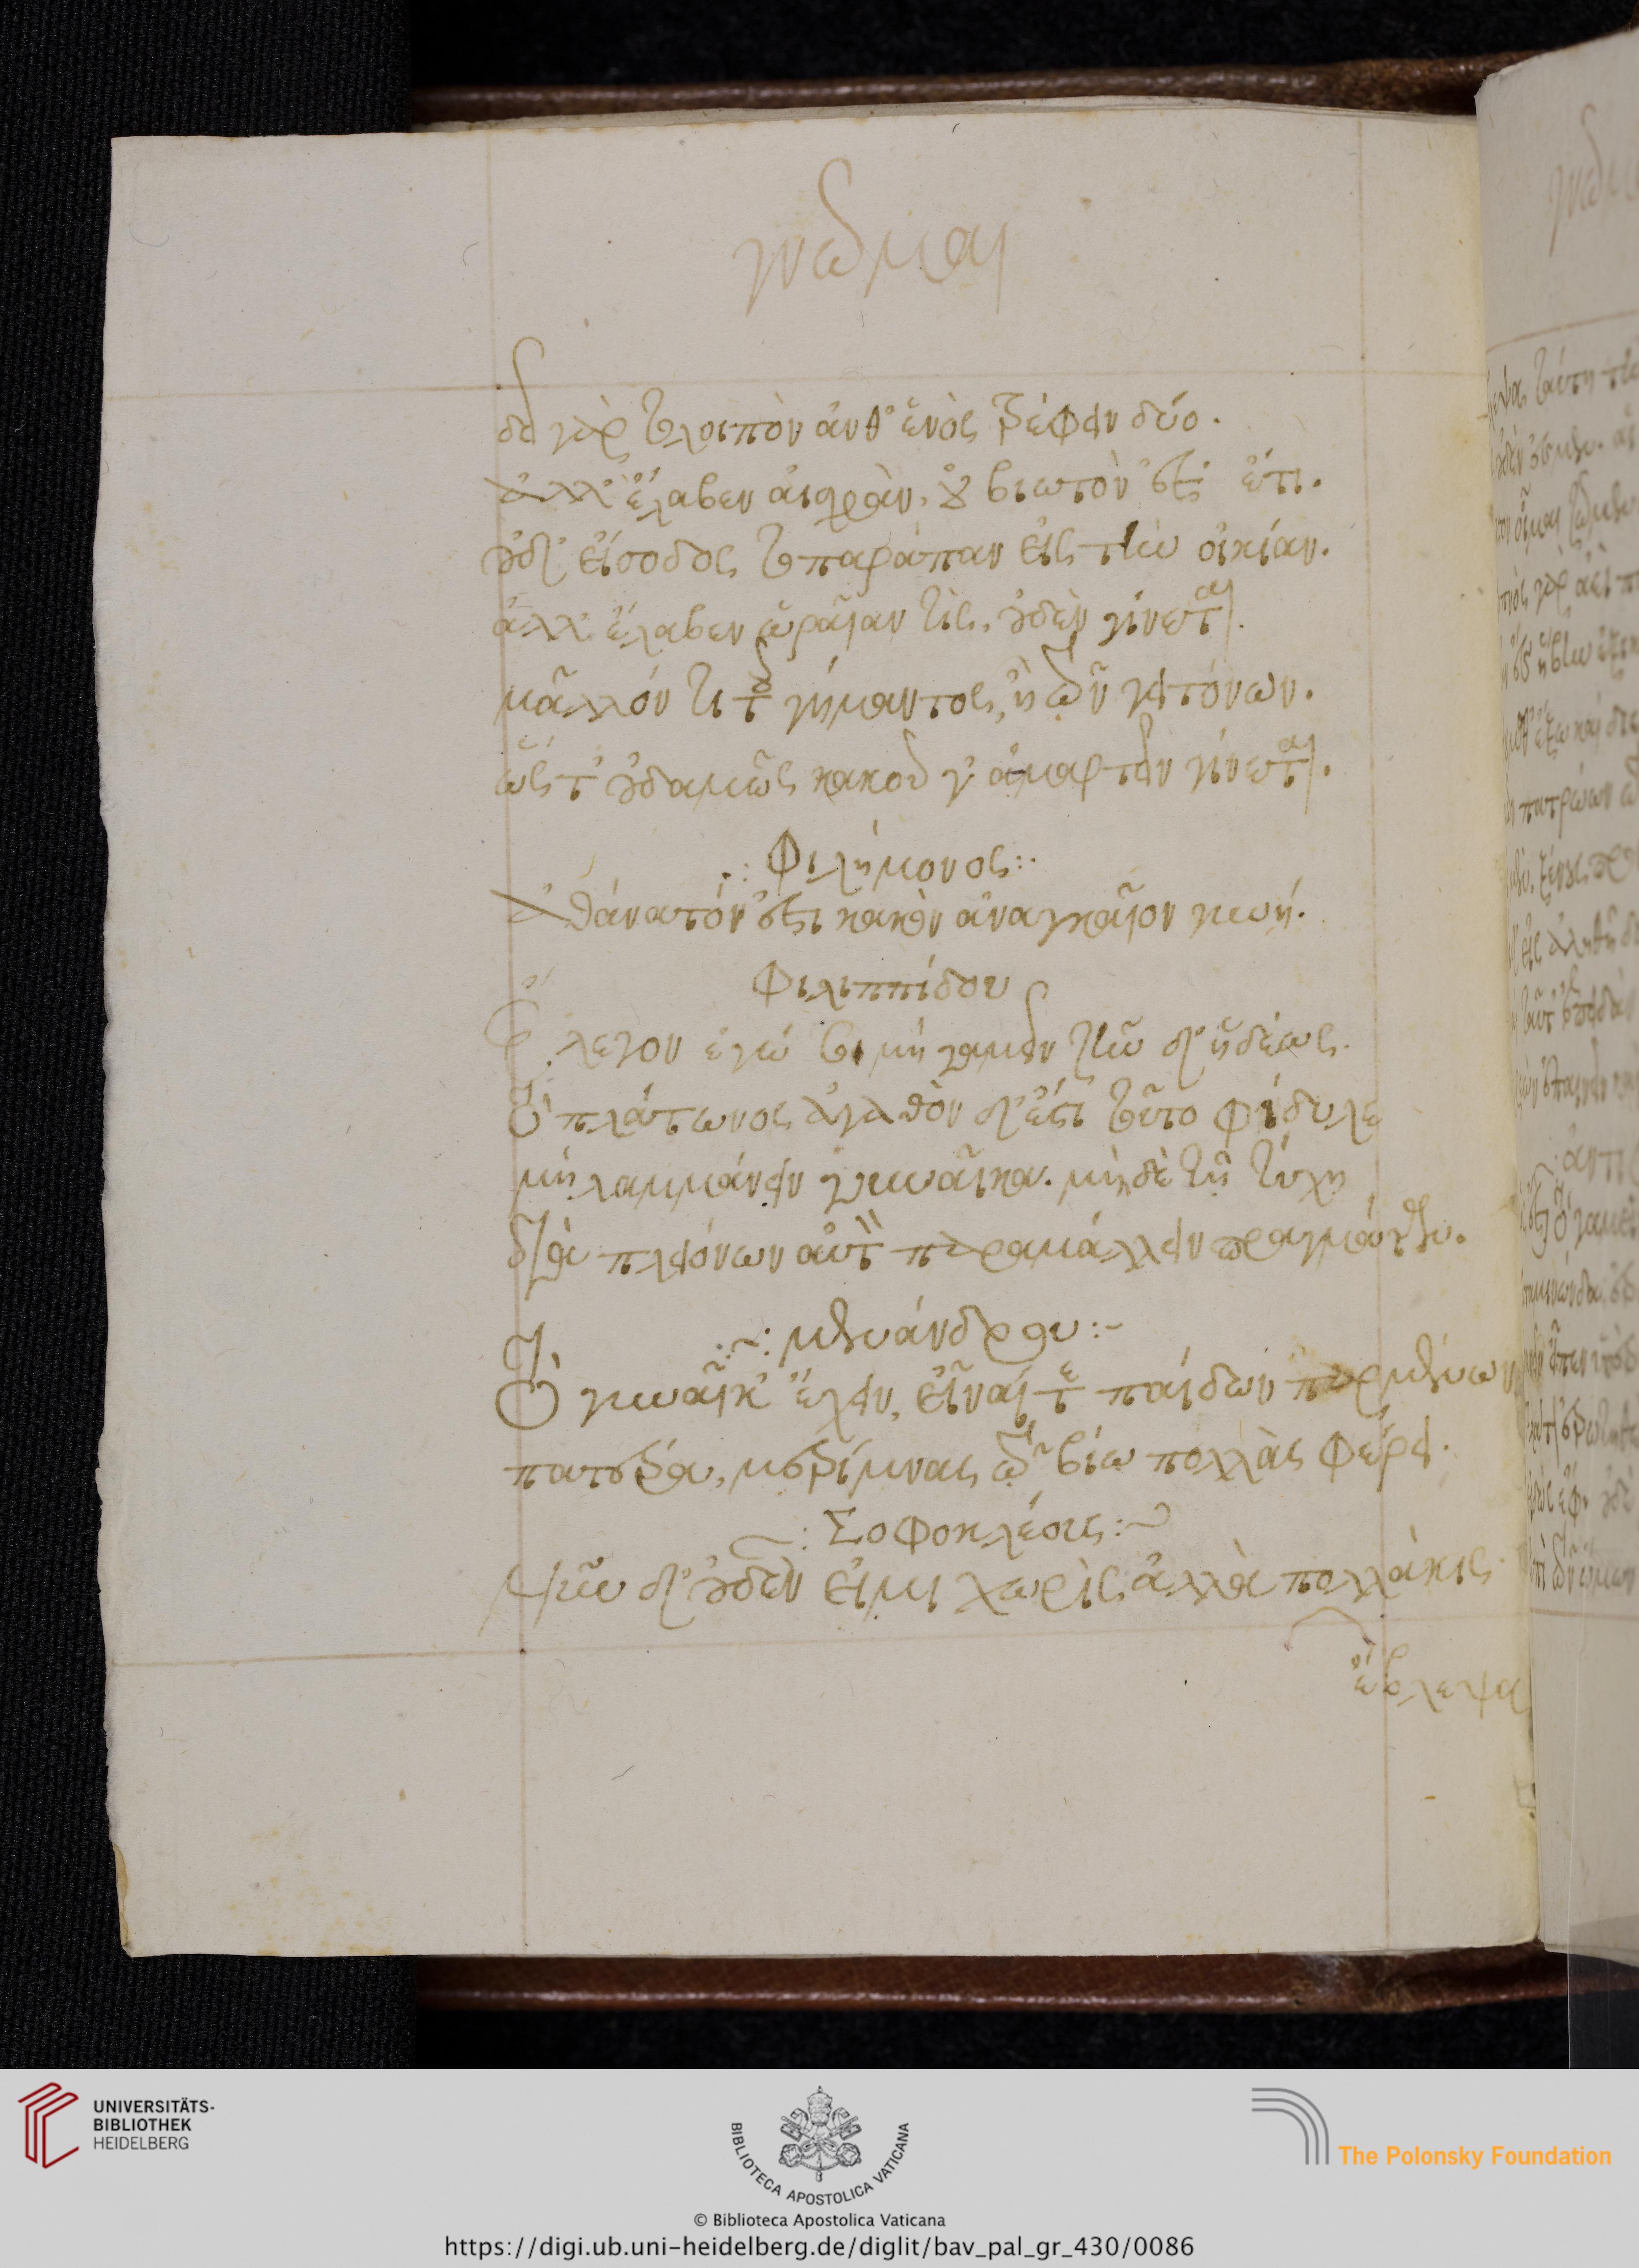 γνῶμαι
δεῖ γὰρ τολοιπὸν ἀνθ' ἑνὸς τρέφειν δύο.
ἀλλ' ἔλαβεν αἰσχρὰν, οὐ βιωτὸν ἐστ' ἔτι.
οὐδ' εἴσοδος τοπαράπαν εἰς τὴν οἰκίαν.
ἀλλ' ἔλαβεν ὡραῖαν τὶς, οὐδὲν γίνεται.
μᾶλλόν τι τοῦ γήμαντος, ἢ τῶν γειτόνων.
ὥςτ' οὐδαμῶς κακοῦ γ' ἁμαρτεῖν γίνεται.
Φιλήμονος
ἀθάνατόν ἐστι κακὸν ἀναγκαῖον γυνή.
Φιλιππίδου
ἔλεγον ἐγώ σοι μὴ γαμεῖν ζῆν δ' ἡδέως.
τὸ πλάτωνος ἀγαθὸν δ' ἐστὶ τοῦτο φείδυλε
μὴ λαμμάνειν γυναῖκα. μὴδὲ τῇ τύχῃ
διὰ πλειόνων αὑτὸν παραμάλλειν πραγμάτων.
μενάνδρου
τὸ γυναῖκ' ἔχειν, εἶναί τε παίδων παρμένων
πατέρα, μερίμνας τῷ βίῳ πολλὰς φέρει.
Σοφοκλέους
νῦν δ' οὐδὲν εἰμι χωρὶς ἀλλὰ πολλάκις
ἔβλεψα
UNIVERSITÄTS-
BIBLIOTHEK
HEIDELBERG
BIBLIOTECA APOSTOLICA VATICANA
The Polonsky Foundation
© Biblioteca Apostolica Vaticana
https://digi.ub.uni-heidelberg.de/diglit/bav_pal_gr_430/0086